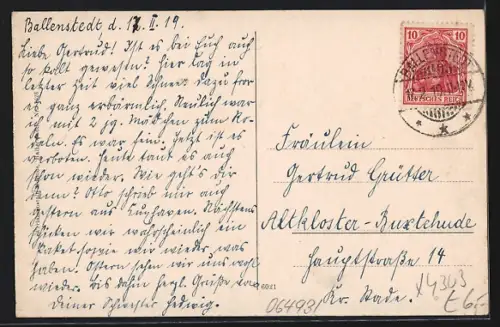 Ballenstedt d. 17. II. 19.
Liebe Gertrud! Ist es bei Euch auch
so kalt gewesen? Hier lag in
letzter Zeit viel Schnee dazu fror
es ganz erbärmlich. Neulich war
ich mit 2 jg. Mädchen zum Ro-
deln. Es war fein. Jetzt ist es
verboten. Heute taut es auch
schon wieder. Wie geht's dir
denn? Otto schrieb mir auch
gestern aus Cuxhaven. Nächstens
schicken wir wahrscheinlich ein
Paket sowie wir wieder was
haben. Ostern sehen wir uns
wieder. Bis dahin herzl. Grüße von
Deiner Schwester Hedwig.
10 10
DEUTSCHES REICH
BALLENSTEDT
Fräulein
Gertrud Grütter
Altkloster-Buxtehude
Hauptstraße 14
Kr. Stade.
6041
064931
X4343
€6,-